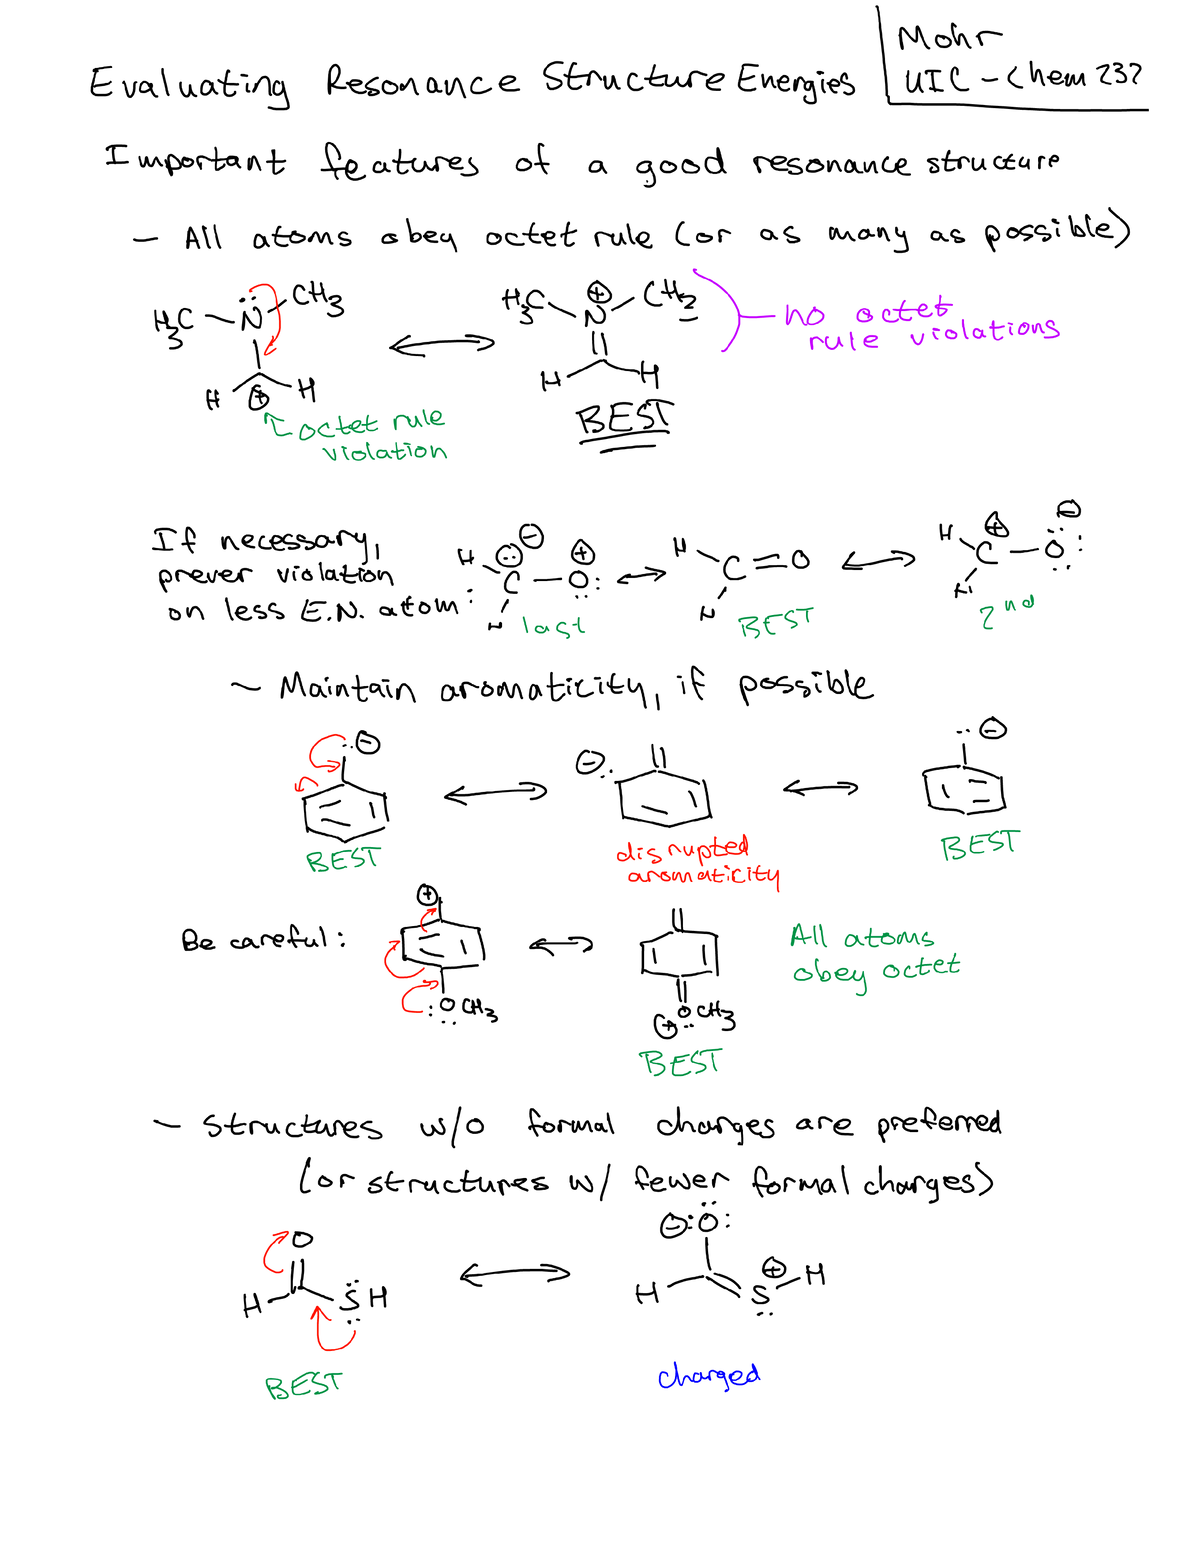 Mohr
UIC - Chem 232
Evaluating Resonance Structure Energies
Important features of a good resonance structure
- All atoms obey octet rule (or as many as possible)
H₃C N̈ CH₃ ↔ H₃C N ⊕ CH₂
H ⊕ H H H
no octet
rule violations
↑ octet rule
violation
BEST
If necessary,
prever violation
on less E.N. atom:
H C ⊖ – O ⊕ H ↔ H C = O H ↔ H C ⊕ – O ⊖ H
last BEST 2nd
~ Maintain aromaticity, if possible
⊖ ↔ ⊖ ↔ ⊖
BEST disrupted
aromaticity
BEST
Be careful:
⊕ ↔
:OCH₃ ⊕OCH₃
All atoms
obey octet
BEST
- Structures w/o formal charges are preferred
(or structures w/ fewer formal charges)
O H SH ↔ ⊖:O: H S ⊕ H
BEST charged